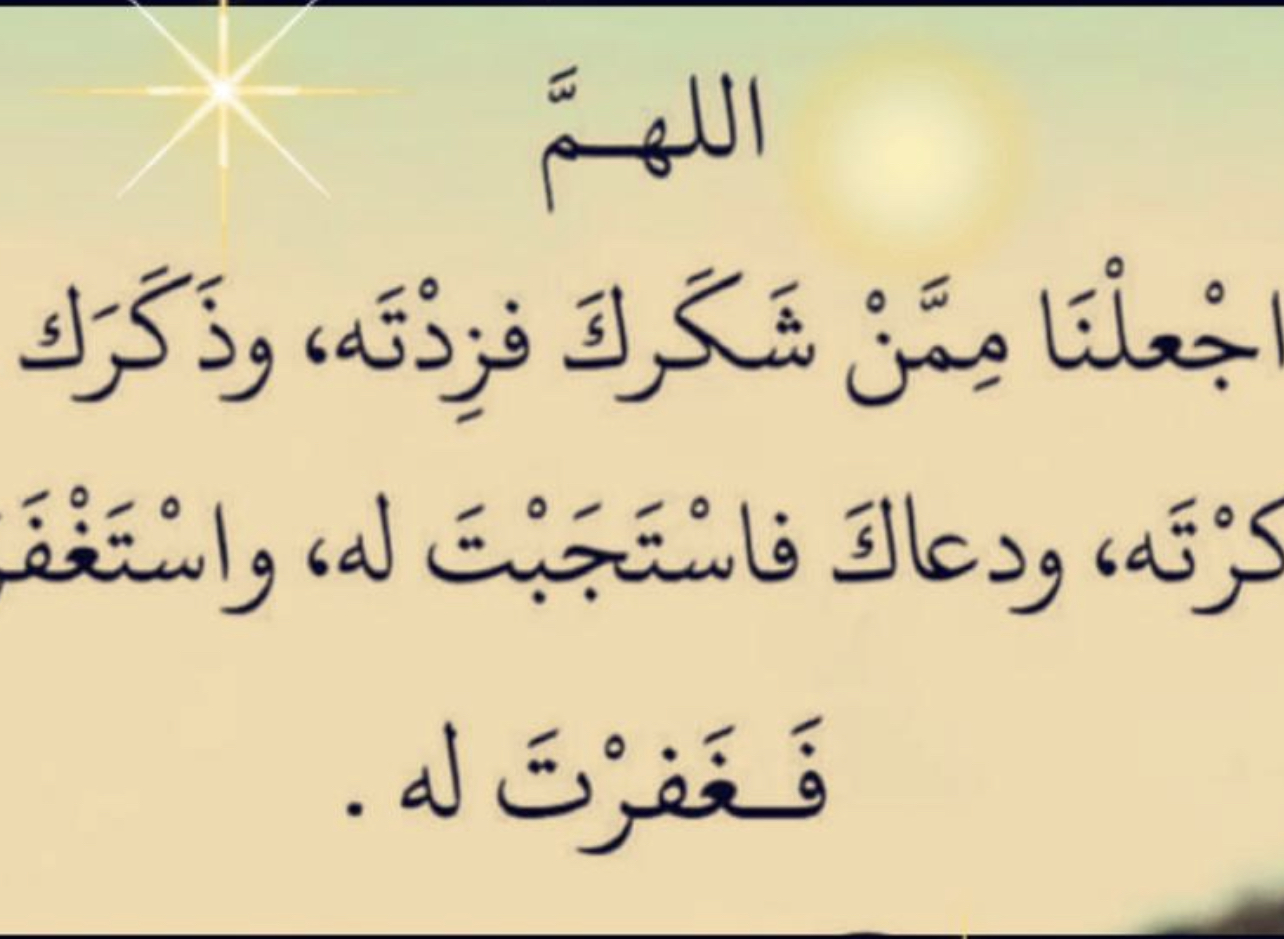 اللهـمَّ
اجْعلْنَا مِمَّنْ شَكَركَ فزِدْتَه، وذَكَرَك
ودعاكَ فاسْتَجَبْتَ له،
فَـغَفرْتَ له .